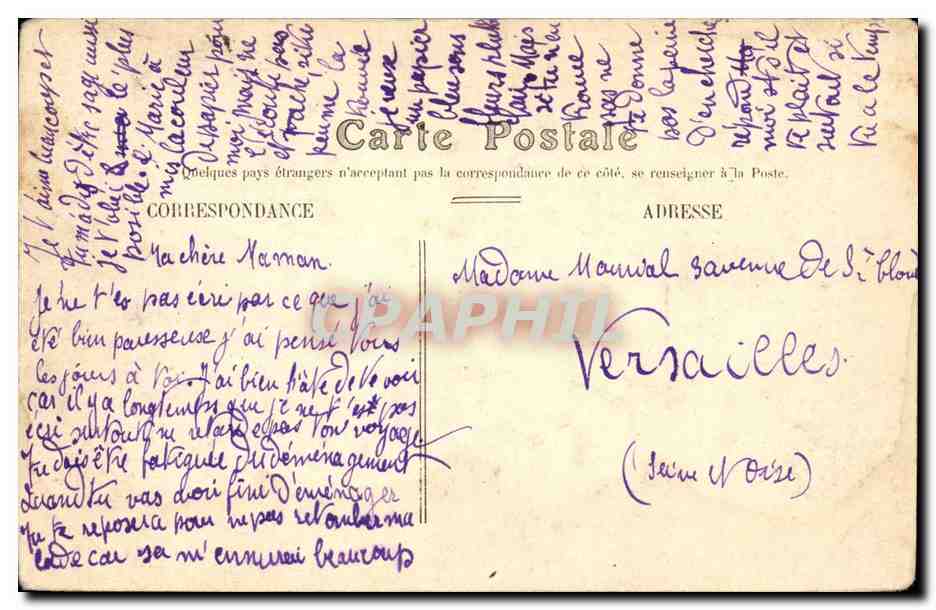 Carte Postale
Quelques pays étrangers n'acceptant pas la correspondance de ce côté, se renseigner à la Poste.
CORRESPONDANCE
ADRESSE
Ma chère Maman.
je ne t'es pas écri par ce que j'ai
été bien paresseuse j'ai pensé tous
les jours à toi. J'ai bien hâte de te voir
car il y a longtemps que je ne t'est pas
écri surtout ne retarde pas ton voyage
Tu dois être fatiguée du déménagement
Quand tu vas avoir fini d'éménager
Tu te reposera pour ne pas retomber ma
lade car sa m'ennuirai beaucoup
Je t'aime beaucoup et
tu m'a dit d'être sage aussi
je t'obéi le plus
posible. Marie à
mis la couleur
du papier pour
moi mais je ne
peu me la
je veux
un papier
bleu sans
fleurs plutôt
Mais
si tu n'en
trouve
pas ne
te donne
pas la peine
d'en cherché
répond
moi st s'il
te plait et
surtout si
tu a le temps
Madame Mourial 3 avenue de St Cloud
Versailles.
(Seine et Oise)
CPAPHIL